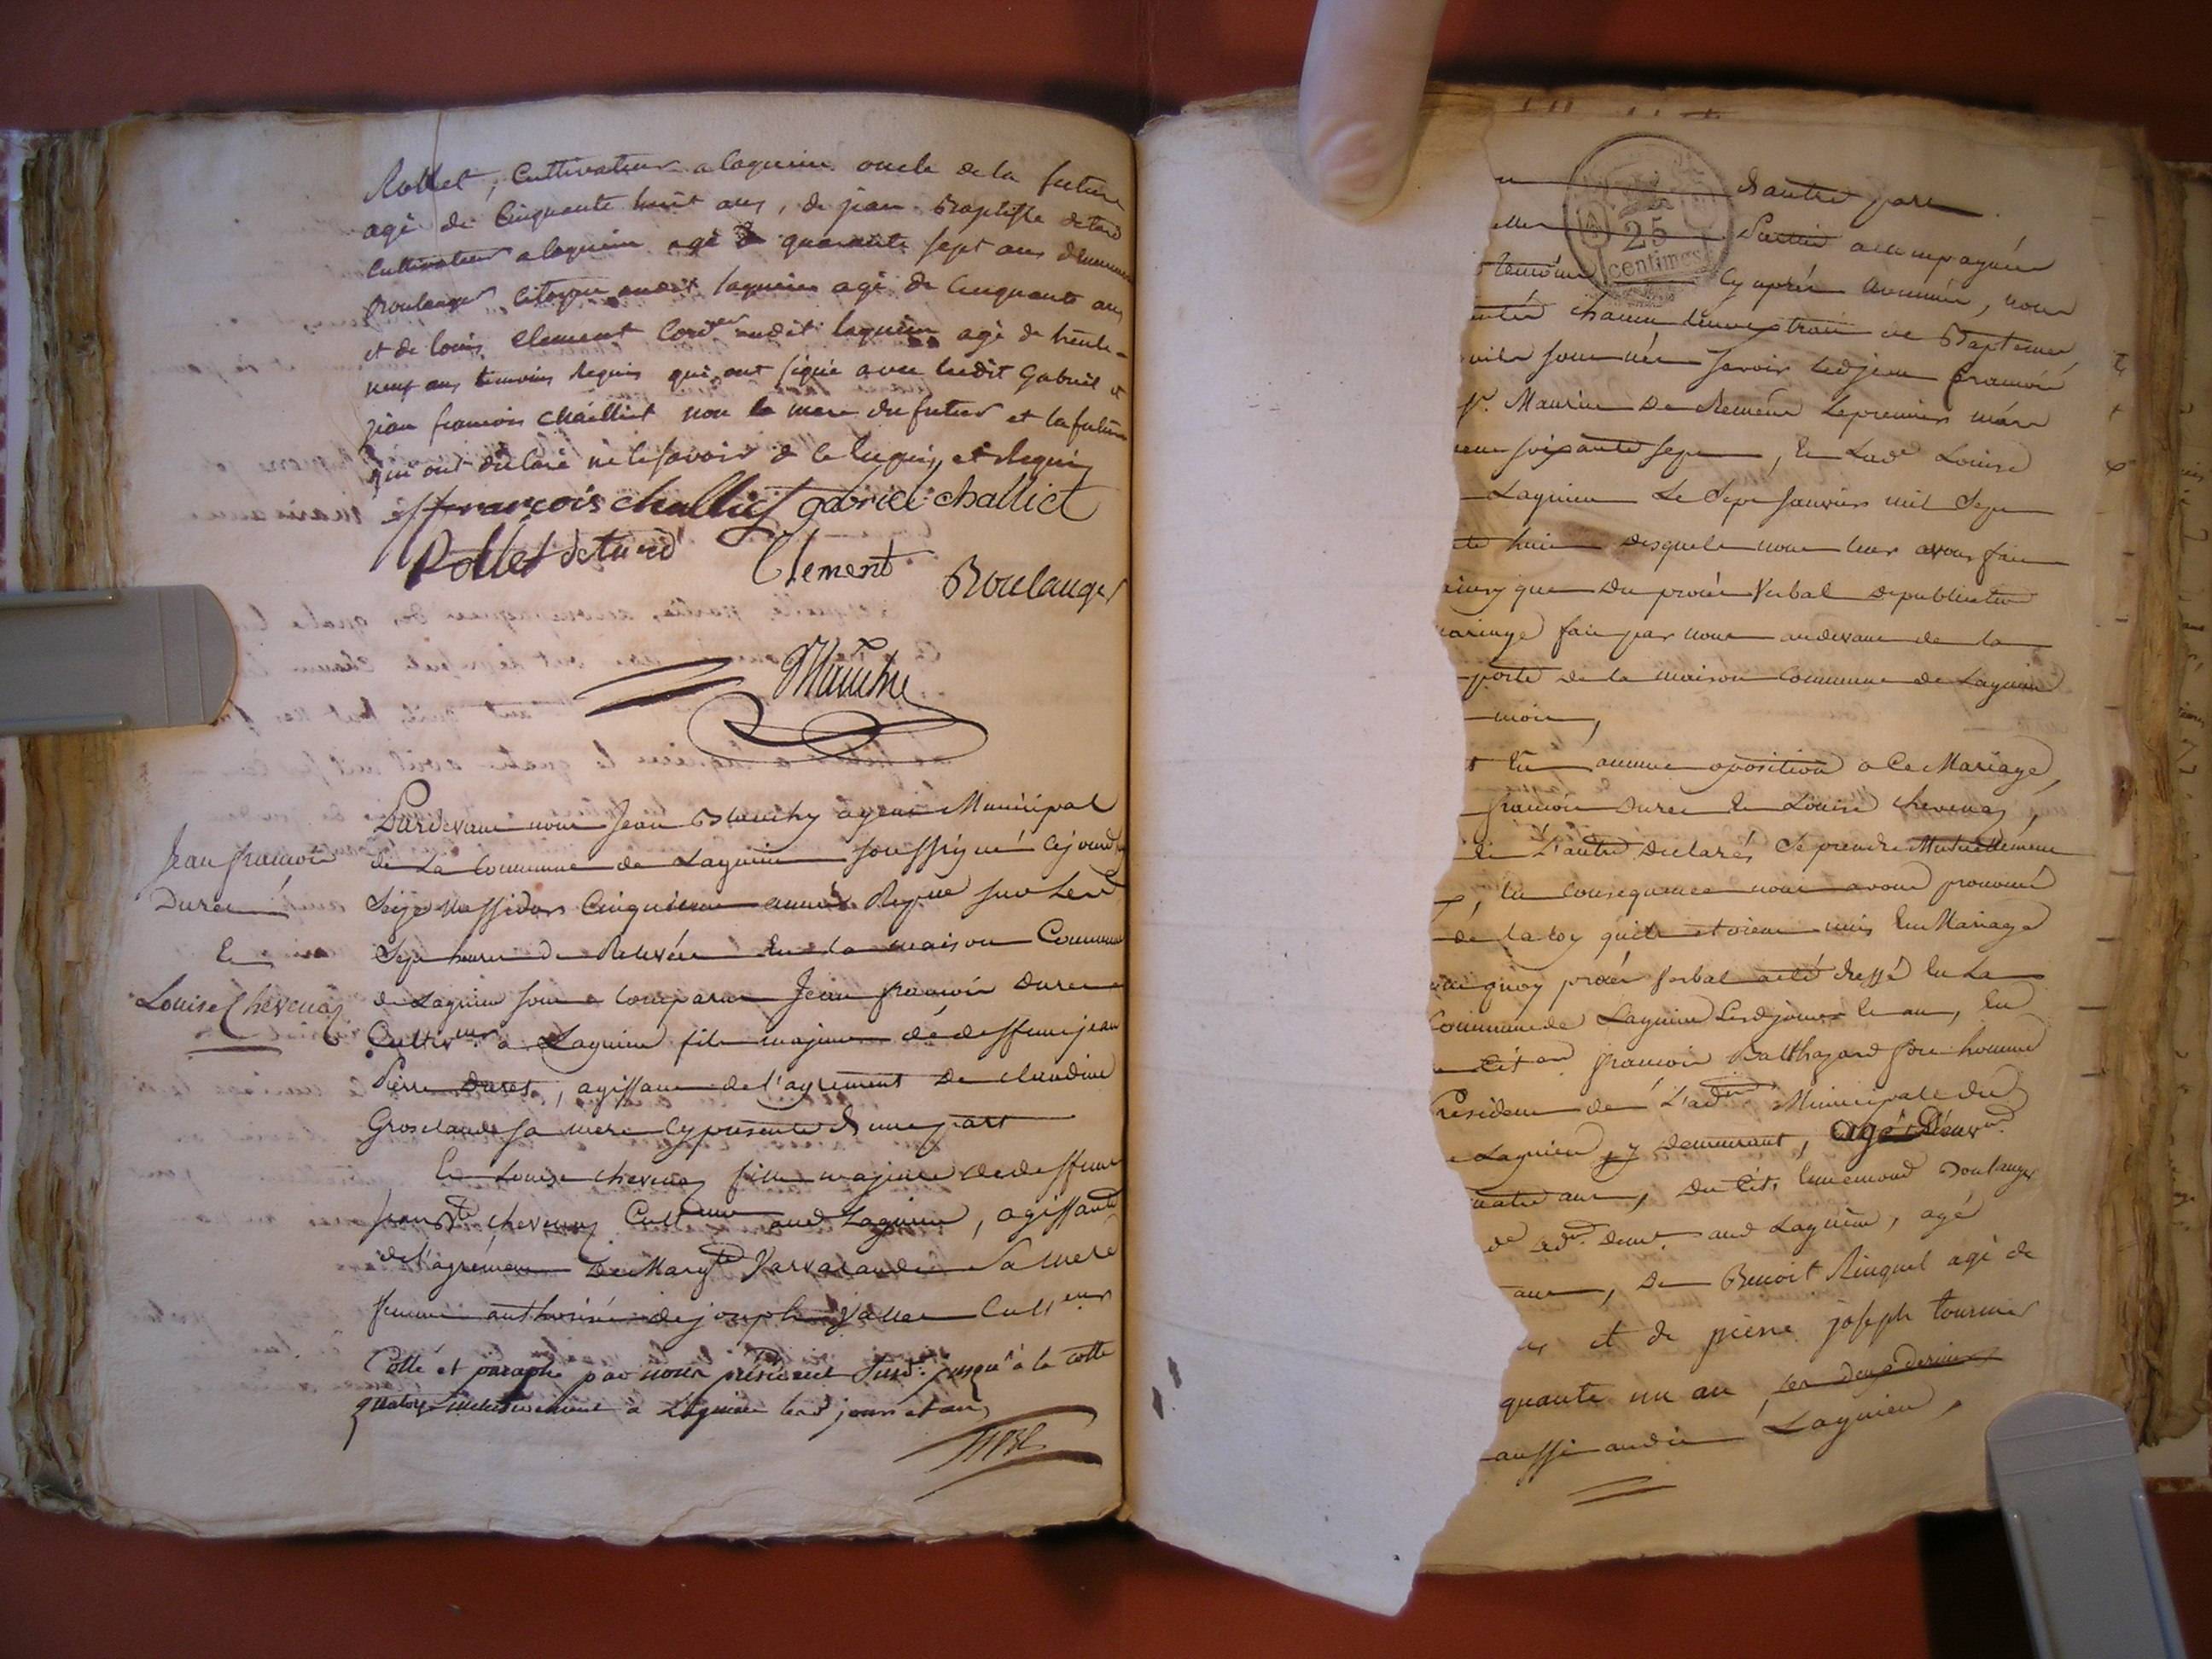 Rollet, Cultivateur a lagnieu oncle de la future
agé de Cinquante huit ans, de jean Baptiste deturd
Cultivateur a lagnieu agé de quarante sept ans
Boulanger Citoyen audit lagnieu agé de Cinquante ans
et de louis Clement Cord.er audit lagnieu agé de trente
neuf ans temoins requis qui ont signé avec ledit Gabriel et
jean francois chailliet non la mere du futur et la future
qui ont déclaré ne le savoir de ce enquis et requis
jf francois challiet gabriel challiet
Rollet deturd Clement Boulanger
Jean francois
Duret
Et
Louise Chevenaz
Pardevant nous Jean Blanchy agent Municipal
de La Commune de Lagnieu soussigné Cejourd'huy
Seize Messidor Cinquieme année Repque sur Les
Sept heures de Relevée En la maison Commune
de Lagnieu sont comparus Jean francois Duret
Cultiv.eur a Lagnieu fils majeur de deffunt jean
Pierre Duret, agissant de l'agrement De claudine
Groslande sa mere Cy presente D'une part
Et Louise chevenaz fille majeure de deffunt
Jean B.te chevenaz Cult.eur aud Lagnieu, agissante
de l'agrément De Marg.te Varvarande Sa mere
femme authorisée de joseph Vallet Cult.eur
Cotté et paraphé par nous président Susd. jusqu'à la cotte
quatorze inclusivement à Lagnieu lesd jours et an,
D'autre part
25
centimes
Parties accompagnées
temoins Cy aprés nommés, nous
chacun leur extrait de Baptemes
sont nés savoir Led jean francois
St. Maurice De Remens Le premier mars
soixante sept, Et Lad.e Louise
Lagnieu Le Sept Janvier mil Sept
huit desquels nous leur avons fait
ainsy que Du procés Verbal De publication
mariage fait par nous audevant de la
porte de la maison Commune de Lagnieu
mois,
Eu aucune oposition a Ce Mariage,
francois Duret Et Louise Chevenaz,
L'autre Déclarés Se prendre Mutuellement
En Consequence nous avons prononcé
de la loy qu'ils etoient unis En Mariage
quoy procés Verbal a été dressé En La
Commune de Lagnieu Lesd jours et an, En
Cit.en francois Balthazard
Président de L'ad.on Municipale du
Lagnieu, y demeurant, agé
ans, Du Cit. Ennemond Boulanger
aud Lagnieu, agé
ans, De Benoit Ringuet agé de
et de pierre joseph tournier
quante un an, les deux derniers
aussi audit Lagnieu,